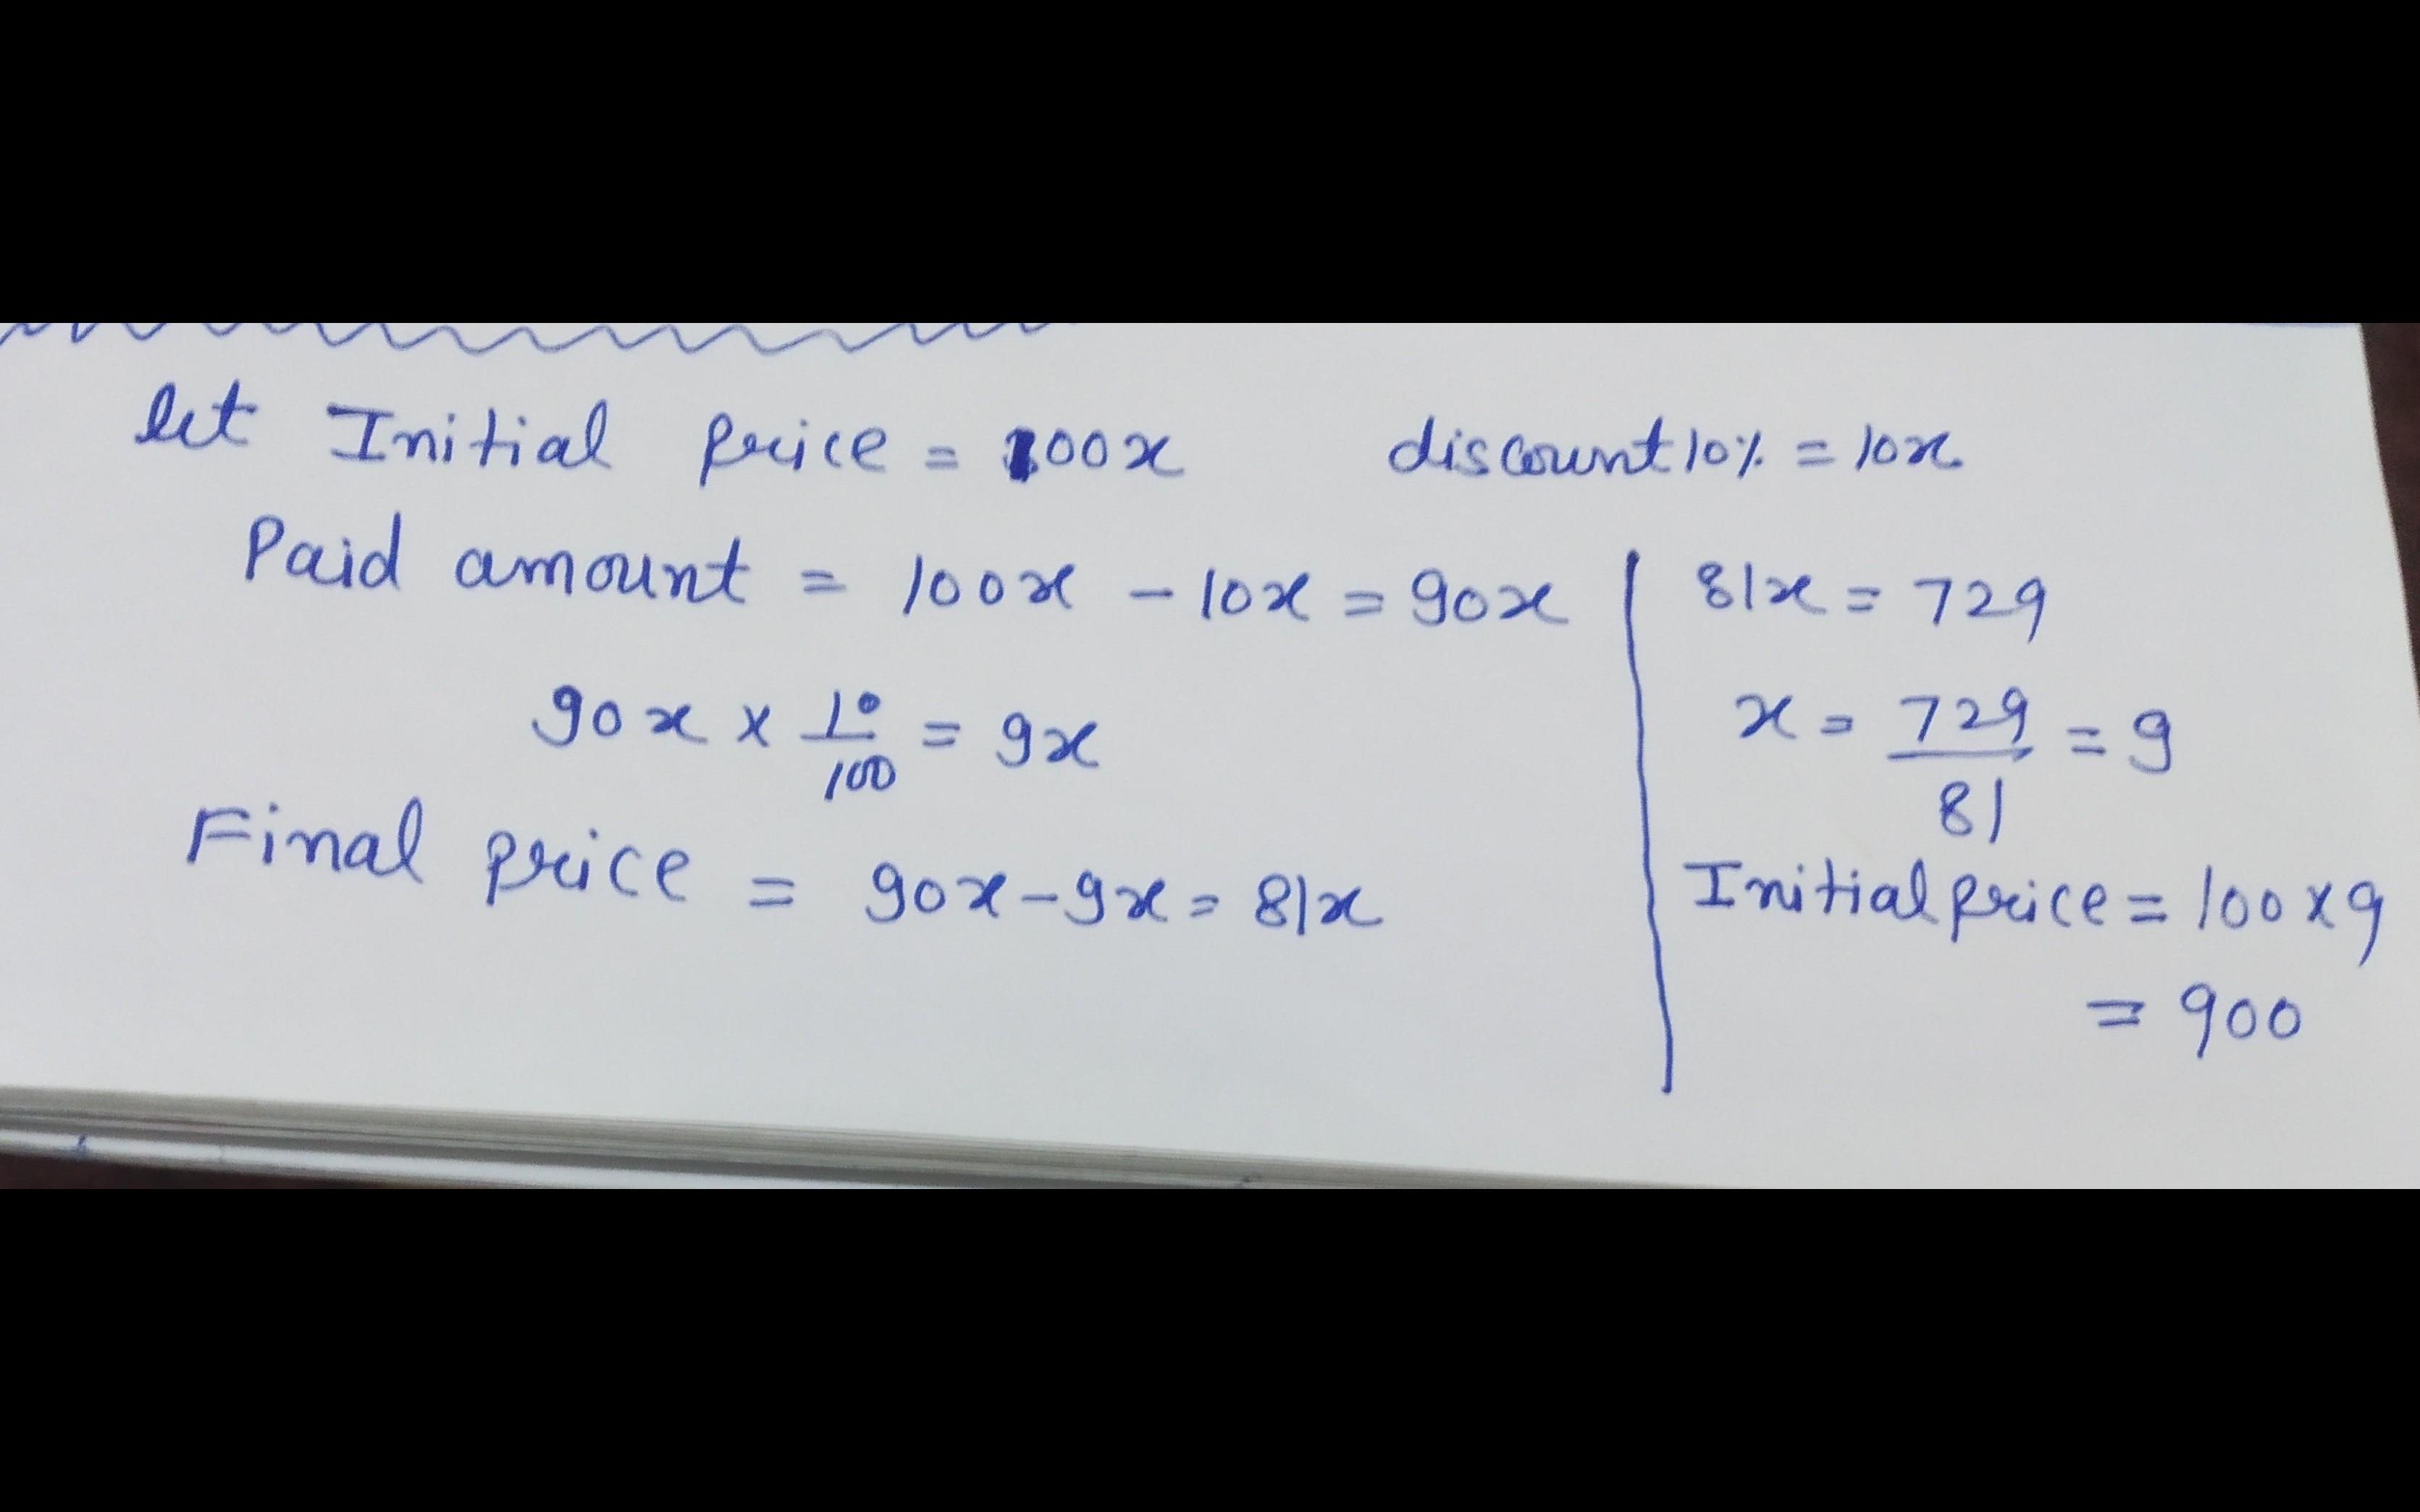 let Initial price = 100x discount 10% = 10x
Paid amount = 100x - 10x = 90x
90x × 10/100 = 9x
Final price = 90x - 9x = 81x
81x = 729
x = 729/81 = 9
Initial price = 100 × 9
= 900